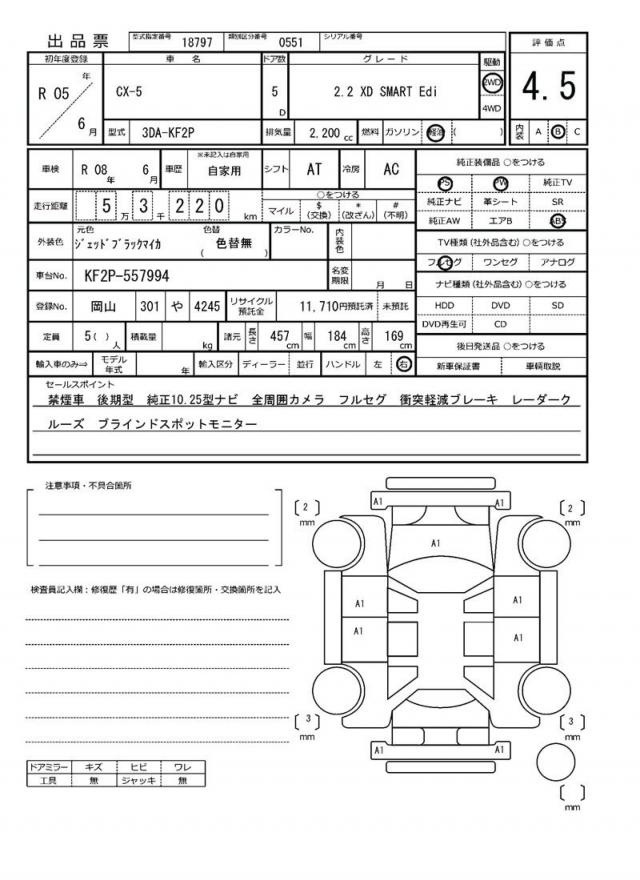 出品票 型式指定番号 18797 類別区分番号 0551 シリアル番号
初年度登録 車名 ドア数 グレード 駆動 評価点
R 05 年 6 月 CX-5 5 D 2.2 XD SMART Edi 2WD 4WD 4.5
型式 3DA-KF2P 排気量 2,200 cc 燃料 ガソリン 軽油 ( ) 内装 A B C
車検 R 08 年 6 月 車歴 ※未記入は自家用 自家用 シフト AT 冷房 AC
走行距離 5 万 3 千 2 2 0 km ○をつける マイル $ (交換) * (改ざん) # (不明)
外装色 元色 ジェットブラックマイカ 色替 ( 色替無 ) カラーNo. 内装色
車台No. KF2P-557994 名変期限 月 日
登録No. 岡山 301 や 4245 リサイクル預託金 11,710円預託済 未預託
定員 5( ) 人 積載量 kg 諸元 長さ 457 cm 幅 184 cm 高さ 169 cm
輸入車のみ⇒ モデル年式 年 輸入区分 ディーラー 並行 ハンドル 左 右
純正装備品 ○をつける
PS PW 純正TV
純正ナビ 革シート SR
純正AW エアB ABS
TV種類(社外品含む) ○をつける
フルセグ ワンセグ アナログ
ナビ種類(社外品含む) ○をつける
HDD DVD SD
DVD再生可 CD
後日発送品 ○をつける
新車保証書 車輌取説
セールスポイント
禁煙車 後期型 純正10.25型ナビ 全周囲カメラ フルセグ 衝突軽減ブレーキ レーダーク
ルーズ ブラインドスポットモニター
注意事項・不具合箇所
検査員記入欄:修復歴「有」の場合は修復箇所・交換箇所を記入
ドアミラー キズ ヒビ ワレ
工具 無 ジャッキ 無
A1 A1
[ 2 ] mm [ 2 ] mm
A1
A1 A1
A1 A1
[ 3 ] mm [ 3 ] mm
A1 A1
[ ] mm